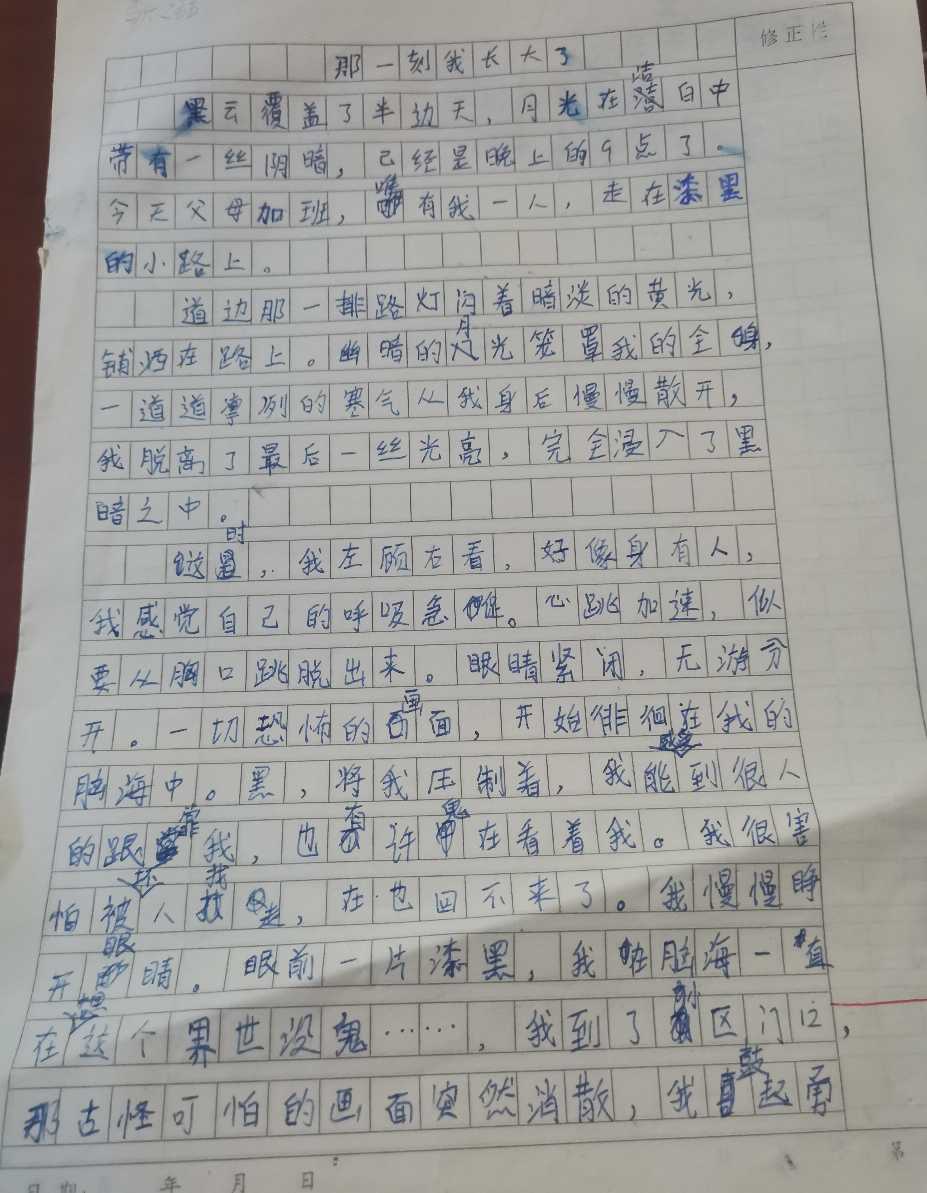 修正栏
那一刻我长大了
黑云覆盖了半边天，月光在洁白中
带有一丝阴暗，己经是晚上的9点了。
今天父母加班，唯有我一人，走在漆黑
的小路上。
道边那一排路灯闪着暗淡的黄光，
铺洒在路上。幽暗的月光笼罩我的全身，
一道道凛冽的寒气从我身后慢慢散开，
我脱离了最后一丝光亮，完全浸入了黑
暗之中。
这时，我左顾右看，好像身有人，
我感觉自己的呼吸急促。心跳加速，似
要从胸口跳脱出来。眼睛紧闭，无游分
开。一切恐怖的画面，开始徘徊在我的
脑海中。黑，将我压制着，我能感受到很人
的跟靠我，也有许鬼在看着我。我很害
怕被坏人找走，在也回不来了。我慢慢睁
开眼睛。眼前一片漆黑，我脑海一直
在想这个界世没鬼……，我到了小区门口，
那古怪可怕的画面突然消散，我鼓起勇
日期： 年 月 日
第